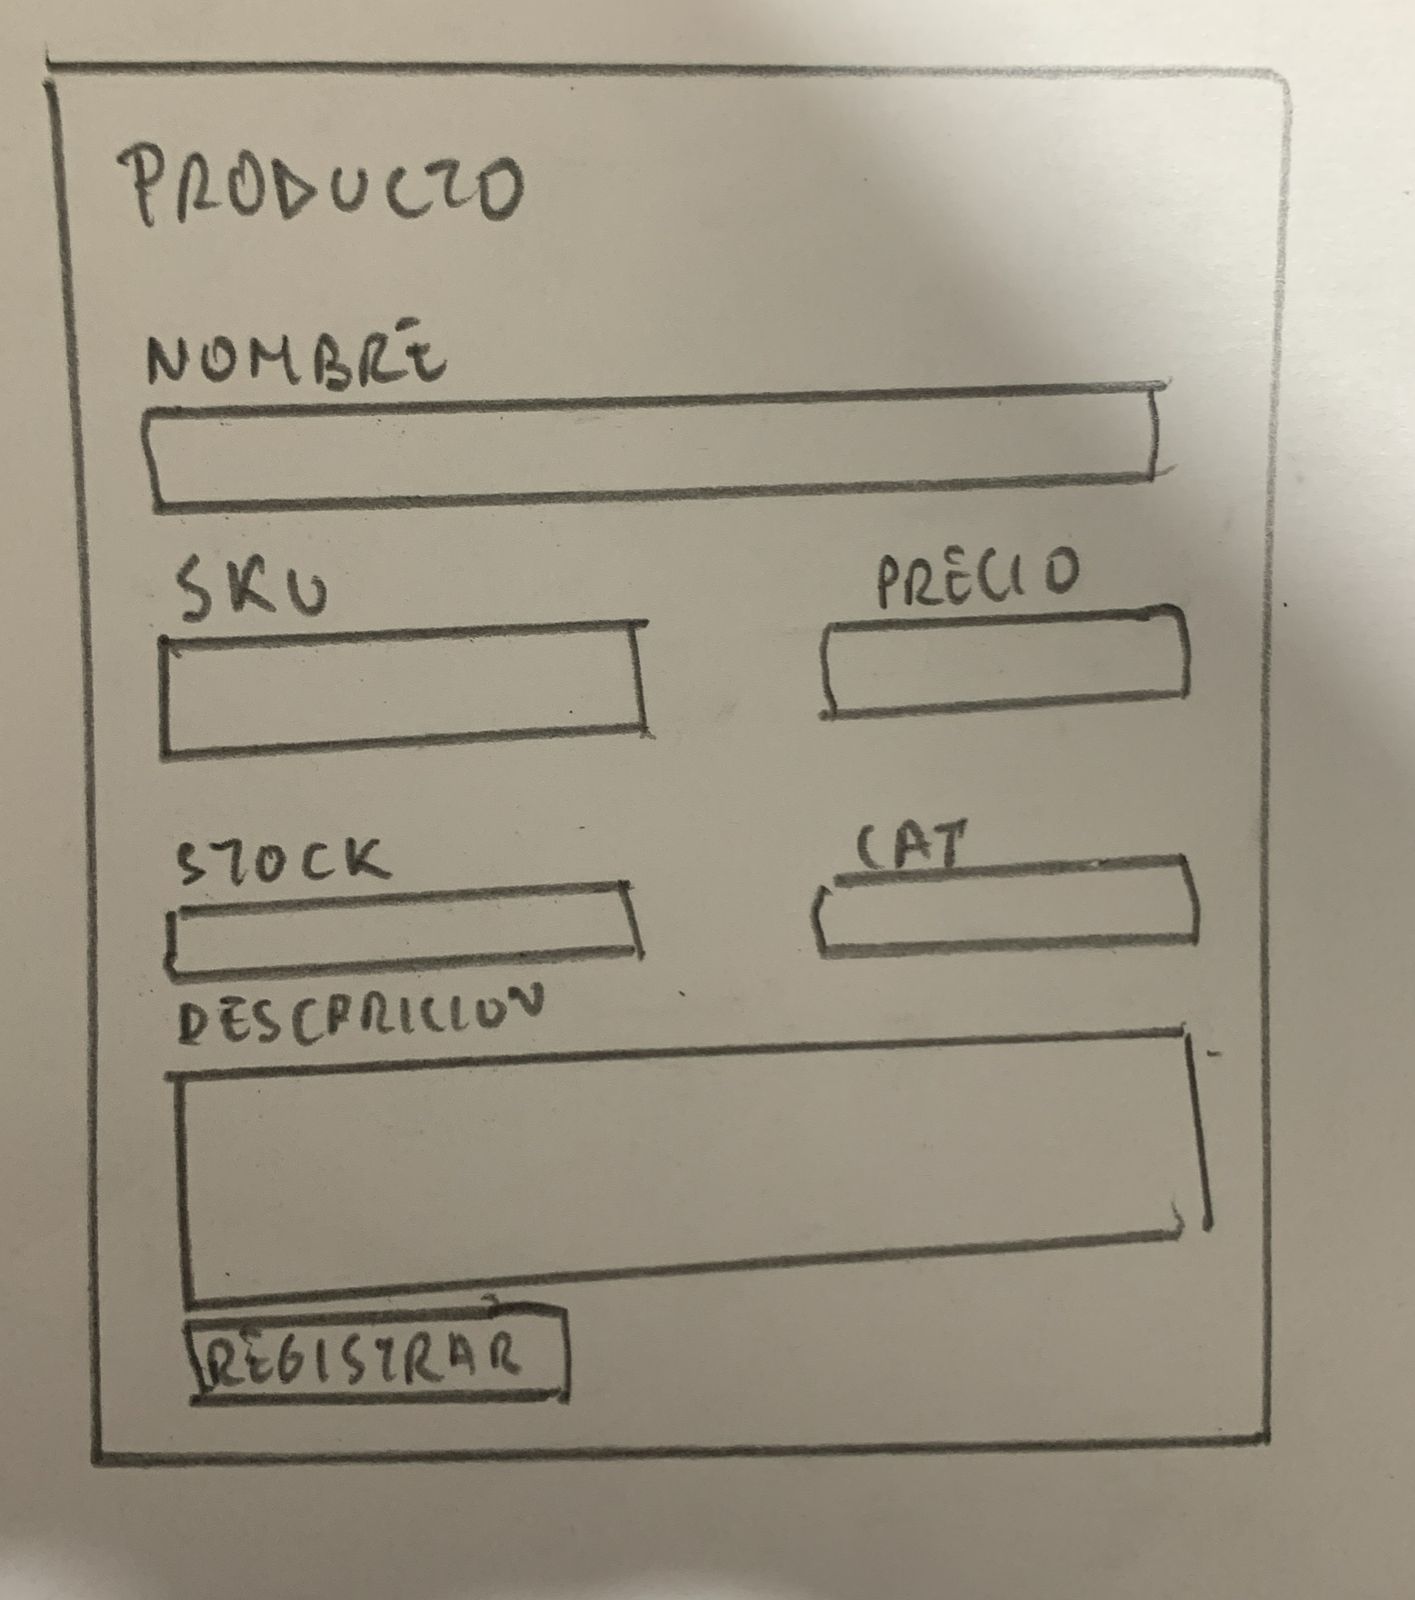 PRODUCTO
NOMBRE
SKU
PRECIO
STOCK
CAT
DESCPRICION
REGISTRAR